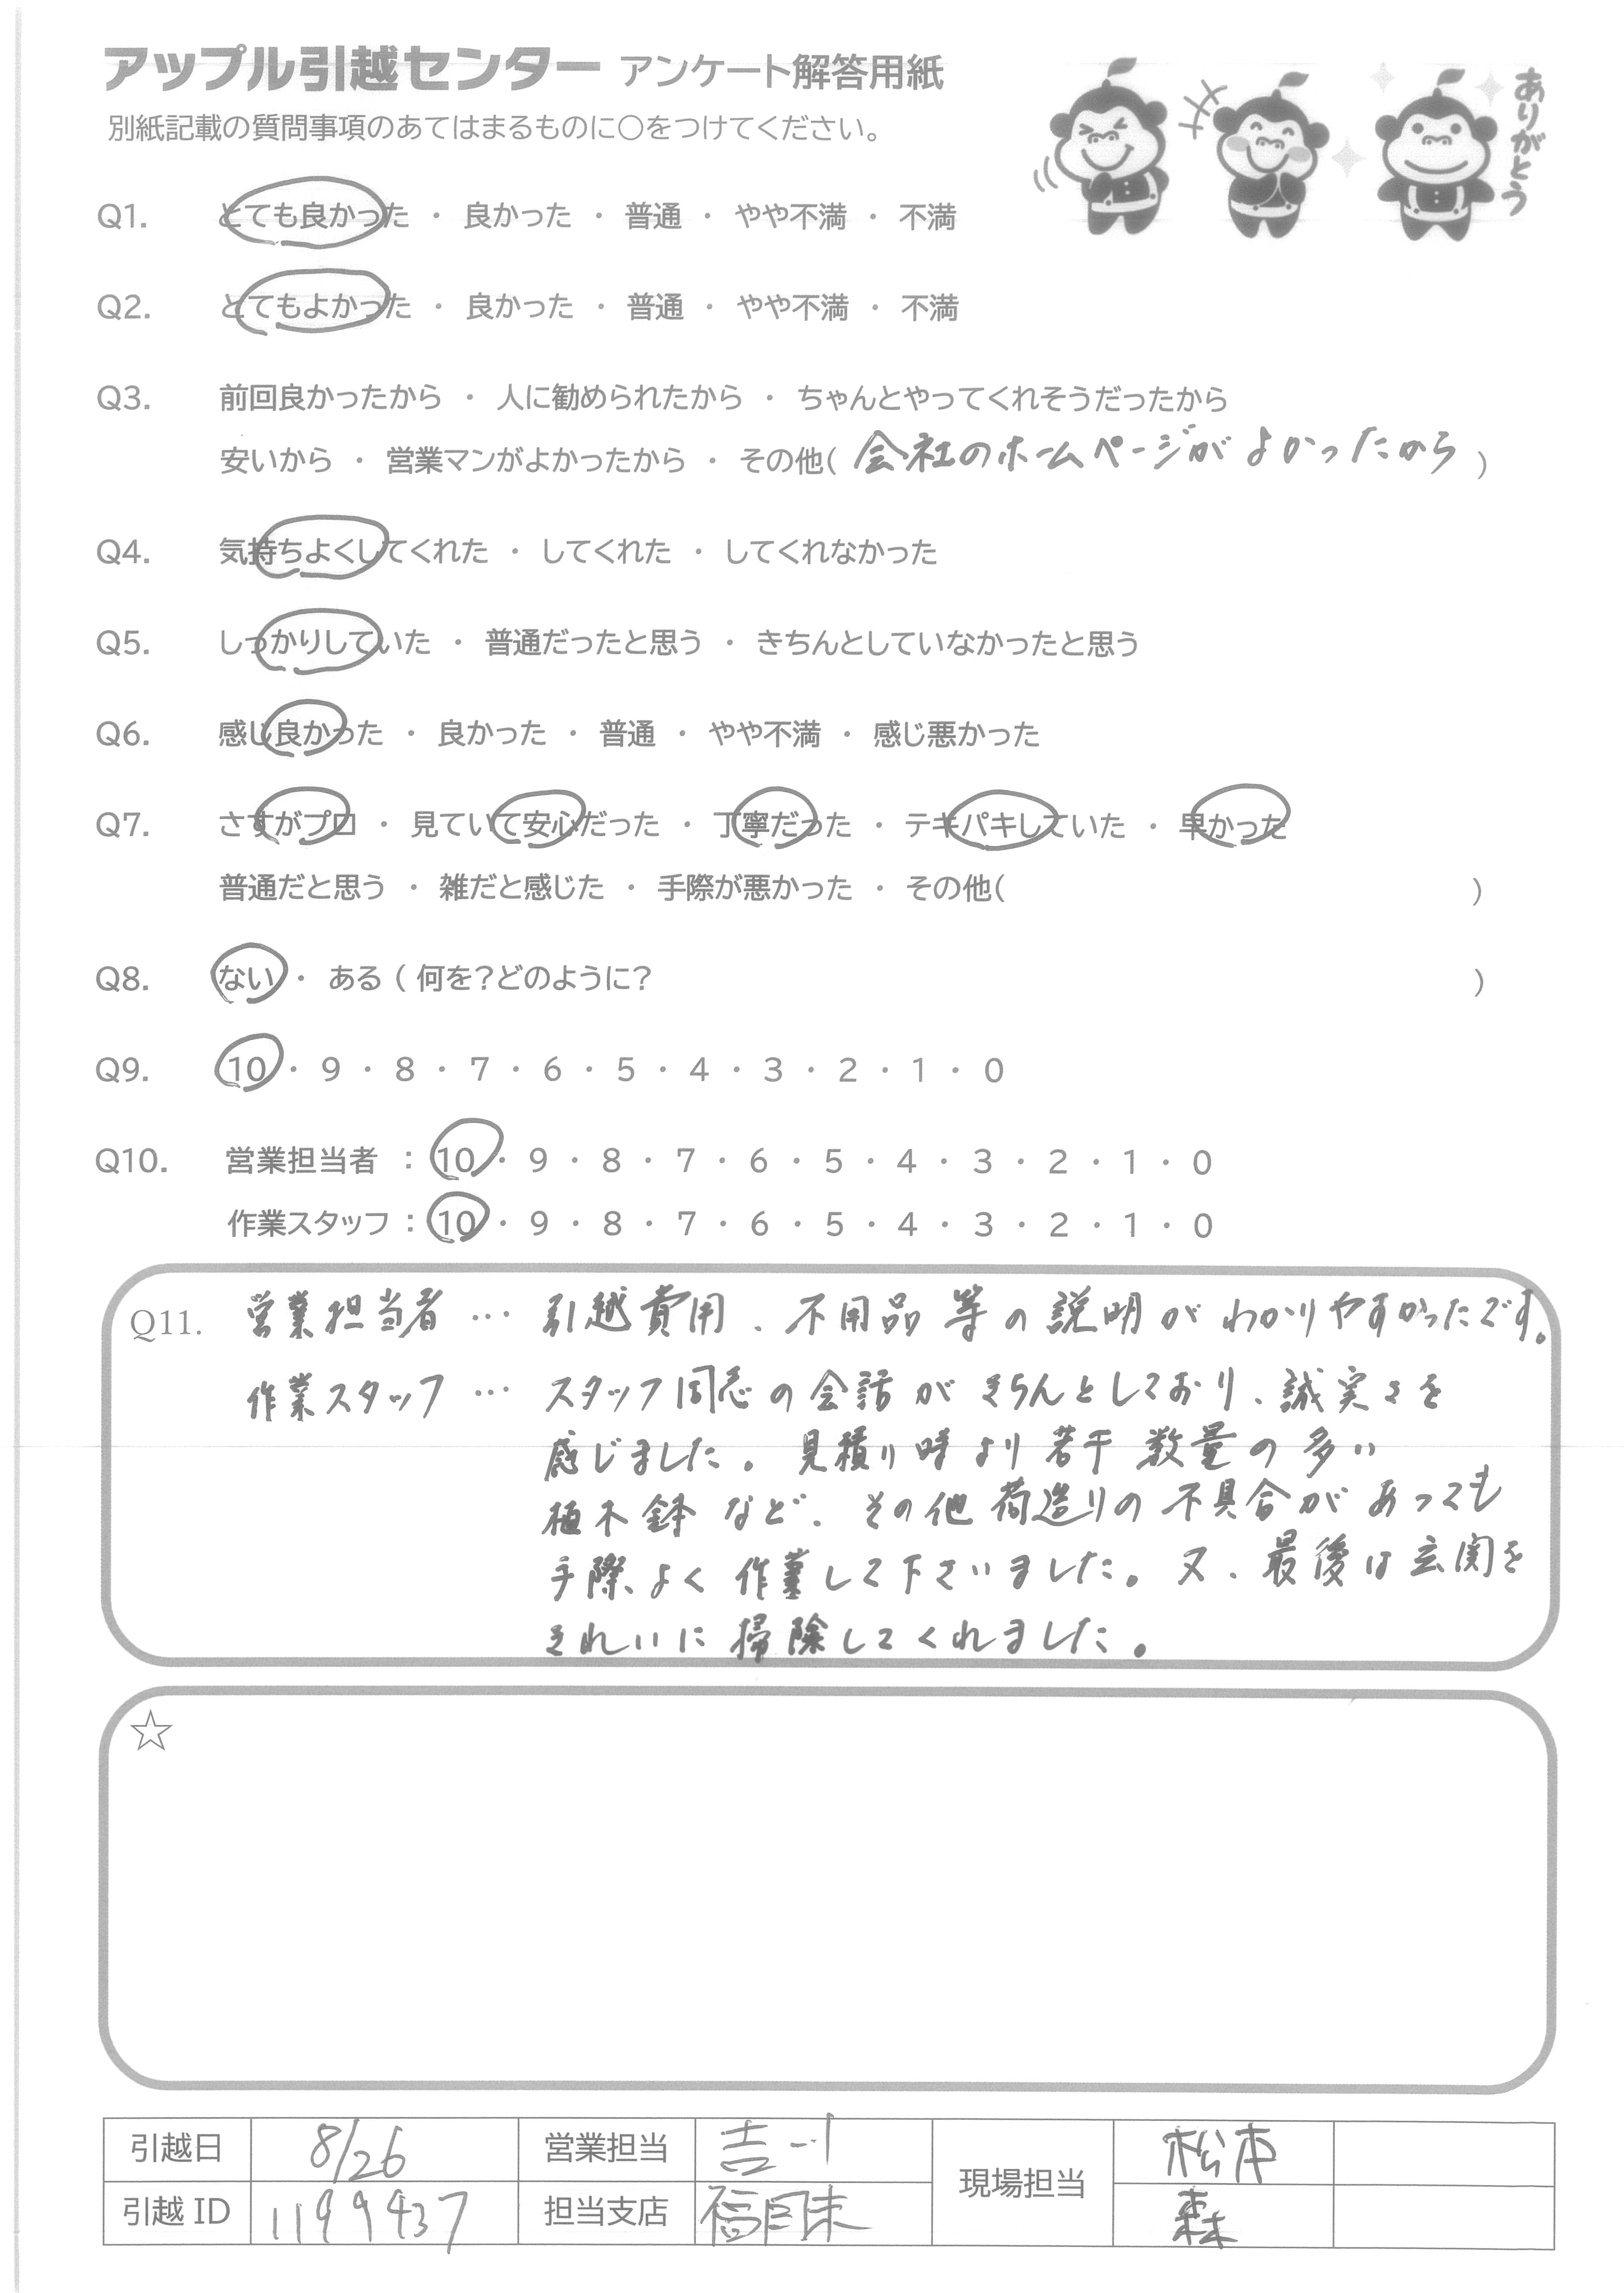 アップル引越センター アンケート解答用紙
ありがとう
別紙記載の質問事項のあてはまるものに○をつけてください。
Q1. とても良かった ・ 良かった ・ 普通 ・ やや不満 ・ 不満
Q2. とてもよかった ・ 良かった ・ 普通 ・ やや不満 ・ 不満
Q3. 前回良かったから ・ 人に勧められたから ・ ちゃんとやってくれそうだったから
安いから ・ 営業マンがよかったから ・ その他( 会社のホームページがよかったから )
Q4. 気持ちよくしてくれた ・ してくれた ・ してくれなかった
Q5. しっかりしていた ・ 普通だったと思う ・ きちんとしていなかったと思う
Q6. 感じ良かった ・ 良かった ・ 普通 ・ やや不満 ・ 感じ悪かった
Q7. さすがプロ ・ 見ていて安心だった ・ 丁寧だった ・ テキパキしていた ・ 早かった
普通だと思う ・ 雑だと感じた ・ 手際が悪かった ・ その他( )
Q8. ない ・ ある ( 何を?どのように? )
Q9. 10 ・ 9 ・ 8 ・ 7 ・ 6 ・ 5 ・ 4 ・ 3 ・ 2 ・ 1 ・ 0
Q10. 営業担当者 : 10 ・ 9 ・ 8 ・ 7 ・ 6 ・ 5 ・ 4 ・ 3 ・ 2 ・ 1 ・ 0
作業スタッフ : 10 ・ 9 ・ 8 ・ 7 ・ 6 ・ 5 ・ 4 ・ 3 ・ 2 ・ 1 ・ 0
Q11. 営業担当者 … 引越費用、不用品等の説明がわかりやすかったです。
作業スタッフ … スタッフ同志の会話がきちんとしており、誠実さを
感じました。見積り時より若干数量の多い
植木鉢など、その他荷造りの不具合があっても
手際よく作業して下さいました。又、最後は玄関を
きれいに掃除してくれました。
☆
引越日 8/26 営業担当 吉川 現場担当 松本
引越ID 1199437 担当支店 福岡東 森